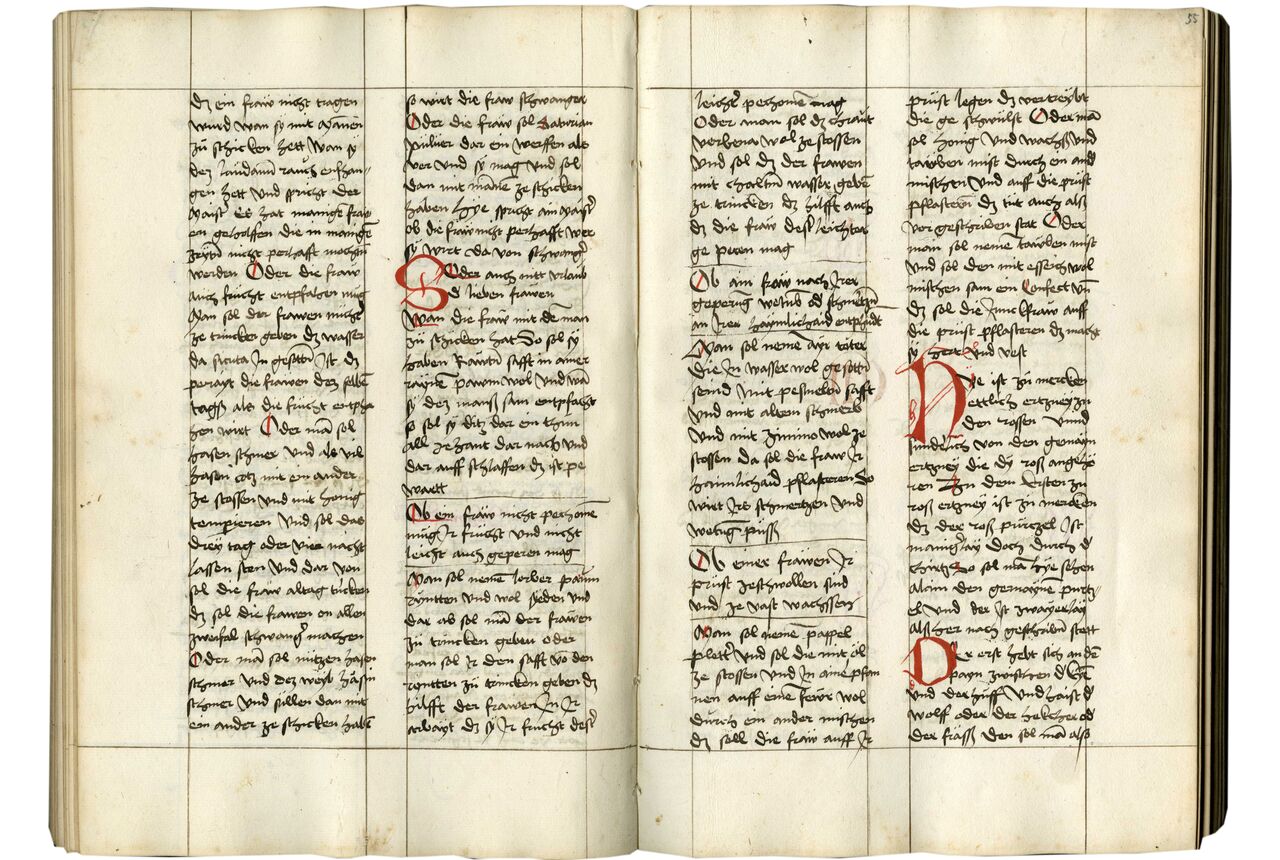 dz ein fraw nicht tragen
wurd wan sy mit mannen
zu schicken hett wan sy
den laudanum rauch enphan-
gen hett und spricht der
maister Es hat manige fraw
en geholffen die in manigen
zeytn nicht perhafft mochtn
werden Oder die fraw
auch frücht entpfahen müg
Man sol der frawen nicht
ze trincken geben dz wasser
da in gesotn ist dz
perayt die frawen des selben
tages als die frücht entpfa
hen wirt Oder man sol
hasen schmer und als vil
hasen mit ein ander
ze stossen und mit honig
temperieren und sol das
drey tag oder vier nacht
lassen sten und dar von
sol die fraw altag trincken
dz sol die frawen on allen
zweifal schwanger machen
Oder man sol nützen hasen
schmer und dez weyb hasin
schmer und süllen dan mit
ein ander ze schicken haben
so wirt die fraw schwanger
Oder die fraw sol Saturian
pulver dar ein werffen als
ver und sy mag und sol
dan mit manne ze schicken
haben hye spricht ain maister
ob die fraw nicht perhafft wer
sy wirt da von schwanger
Oder auch mitt urlaub
d lieben frawen
Wan die fraw mit dem man
zu schicken hat So sol sy
haben Rautn safft in ainer
rainen pawmwol und wan
sy dez mans sam entpfecht
so sol sy ditz dar ein thun
all zehant dar nach und
dar auff schlaffen dz ist pe
waertt
Ob ein fraw nicht pechomen
müg Ir frücht und nicht
leicht auch geperen mag
Man sol nemen lorber pawm
rynten und wol syeden und
dar ab sol man der frawen
zu trincken geben oder
man sol ir den safft von den
rynten zu trincken geben dz
hilfft der frawen In Ir
arbayt dz sy Ir frücht dest
leichter pechomen mag
Oder man sol dz chraut
verbena wol ze stossen
und sol dz der frawen
mit chaltem wasser geben
ze trincken dz hilfft auch
dz die fraw dest leichter
ge peren mag
Ob ain fraw nach Irer
geperung wetum od schmertzn
an Irer haymlichaid entphindt
Man sol nemen ayr toter
die In wasser wol gesotn
seind mit safft
und mit altem schmerb
und mit zimmo wol ze
stossen da sol die fraw Ir
haimlichaid pflasteren So
wirt Irs schmertzen und
wetums puss
Ob einer frawen Ir
prüst zeschwollen sind
und ze vast wachssen
Man sol nemen pappel
pletter und sol die mit öl
ze stossen und In ainer pfan
nen auff einem fewr wol
durch ein ander mischen
dz soll die fraw auff Ir
55
prüst legen dz vertreybt
die ge schwülst Oder man
sol honig und wachss und
tawben mist durch ein and
mischen und auff die prüst
pflasteren dz tut auch als
vor geschriben stet Oder
man sol nemen tawben mist
und sol den mit essich wol
mischen sam ein Confect und
dz sol die Junckfraw auff
die prüst pflasteren dz macht
sy hert und vest
Hye ist zu mercken
ettlich ertzney zu
den rossen unnd
sunderlich von den gemayn
ertzney die dy ross angehö
ren Zu dem Ersten zu
ross ertzney ist zu mercken
dz der ross pürtzel Ist
maniger lay doch durch d
chürtz So sol man hye sehen
alain den gemaynen pürtz-
el und der Ist zwayer lay
als her nach geschriben stett
Der erst hebt sich an den
payn zwischen d
und der huff und haist d
wolff oder der od
der sol man also